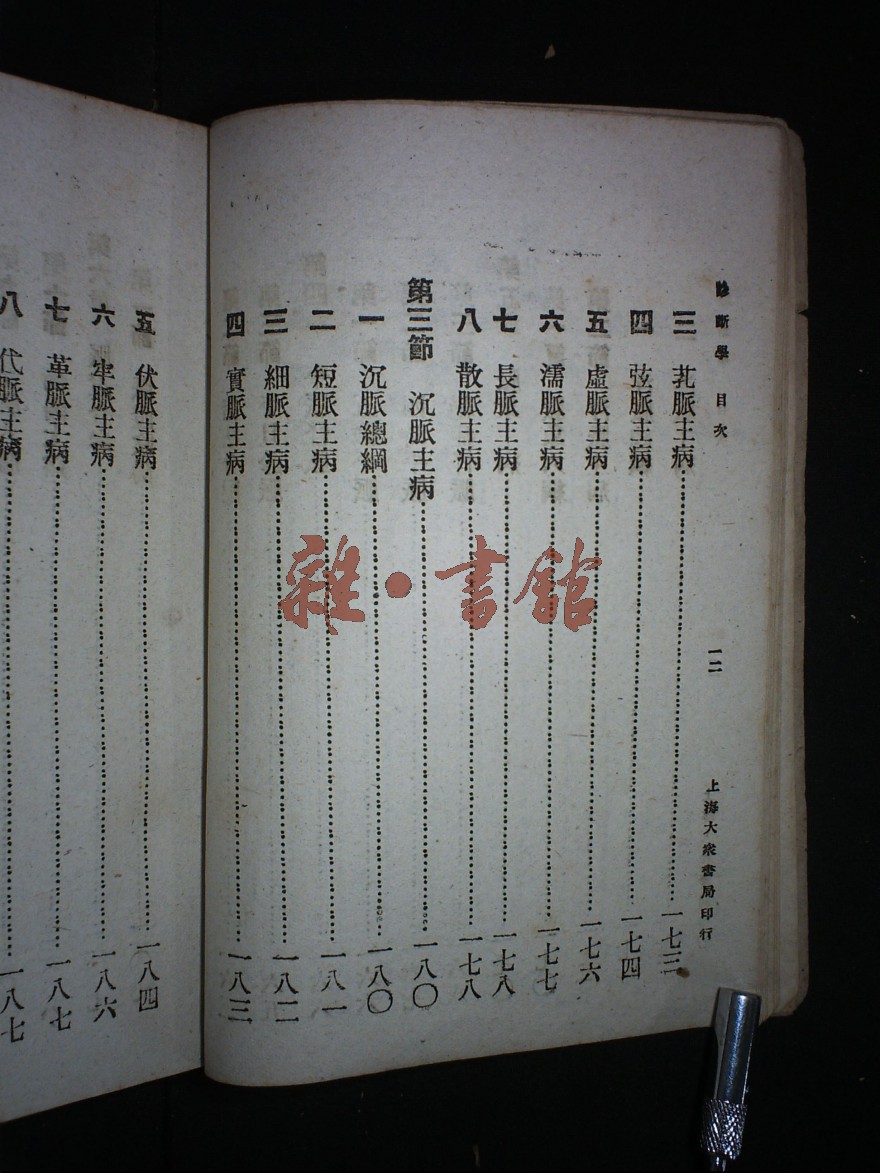 診斷學 目次 一二 上海大衆書局印行
三 芤脈主病 一七三
四 弦脈主病 一七四
五 虛脈主病 一七六
六 濡脈主病 一七七
七 長脈主病 一七八
八 散脈主病 一七八
第三節 沉脈主病 一八〇
一 沉脈總綱 一八〇
二 短脈主病 一八一
三 細脈主病 一八二
四 實脈主病 一八三
五 伏脈主病 一八四
六 牢脈主病 一八六
七 革脈主病 一八七
八 代脈主病 一八七
雜·書館